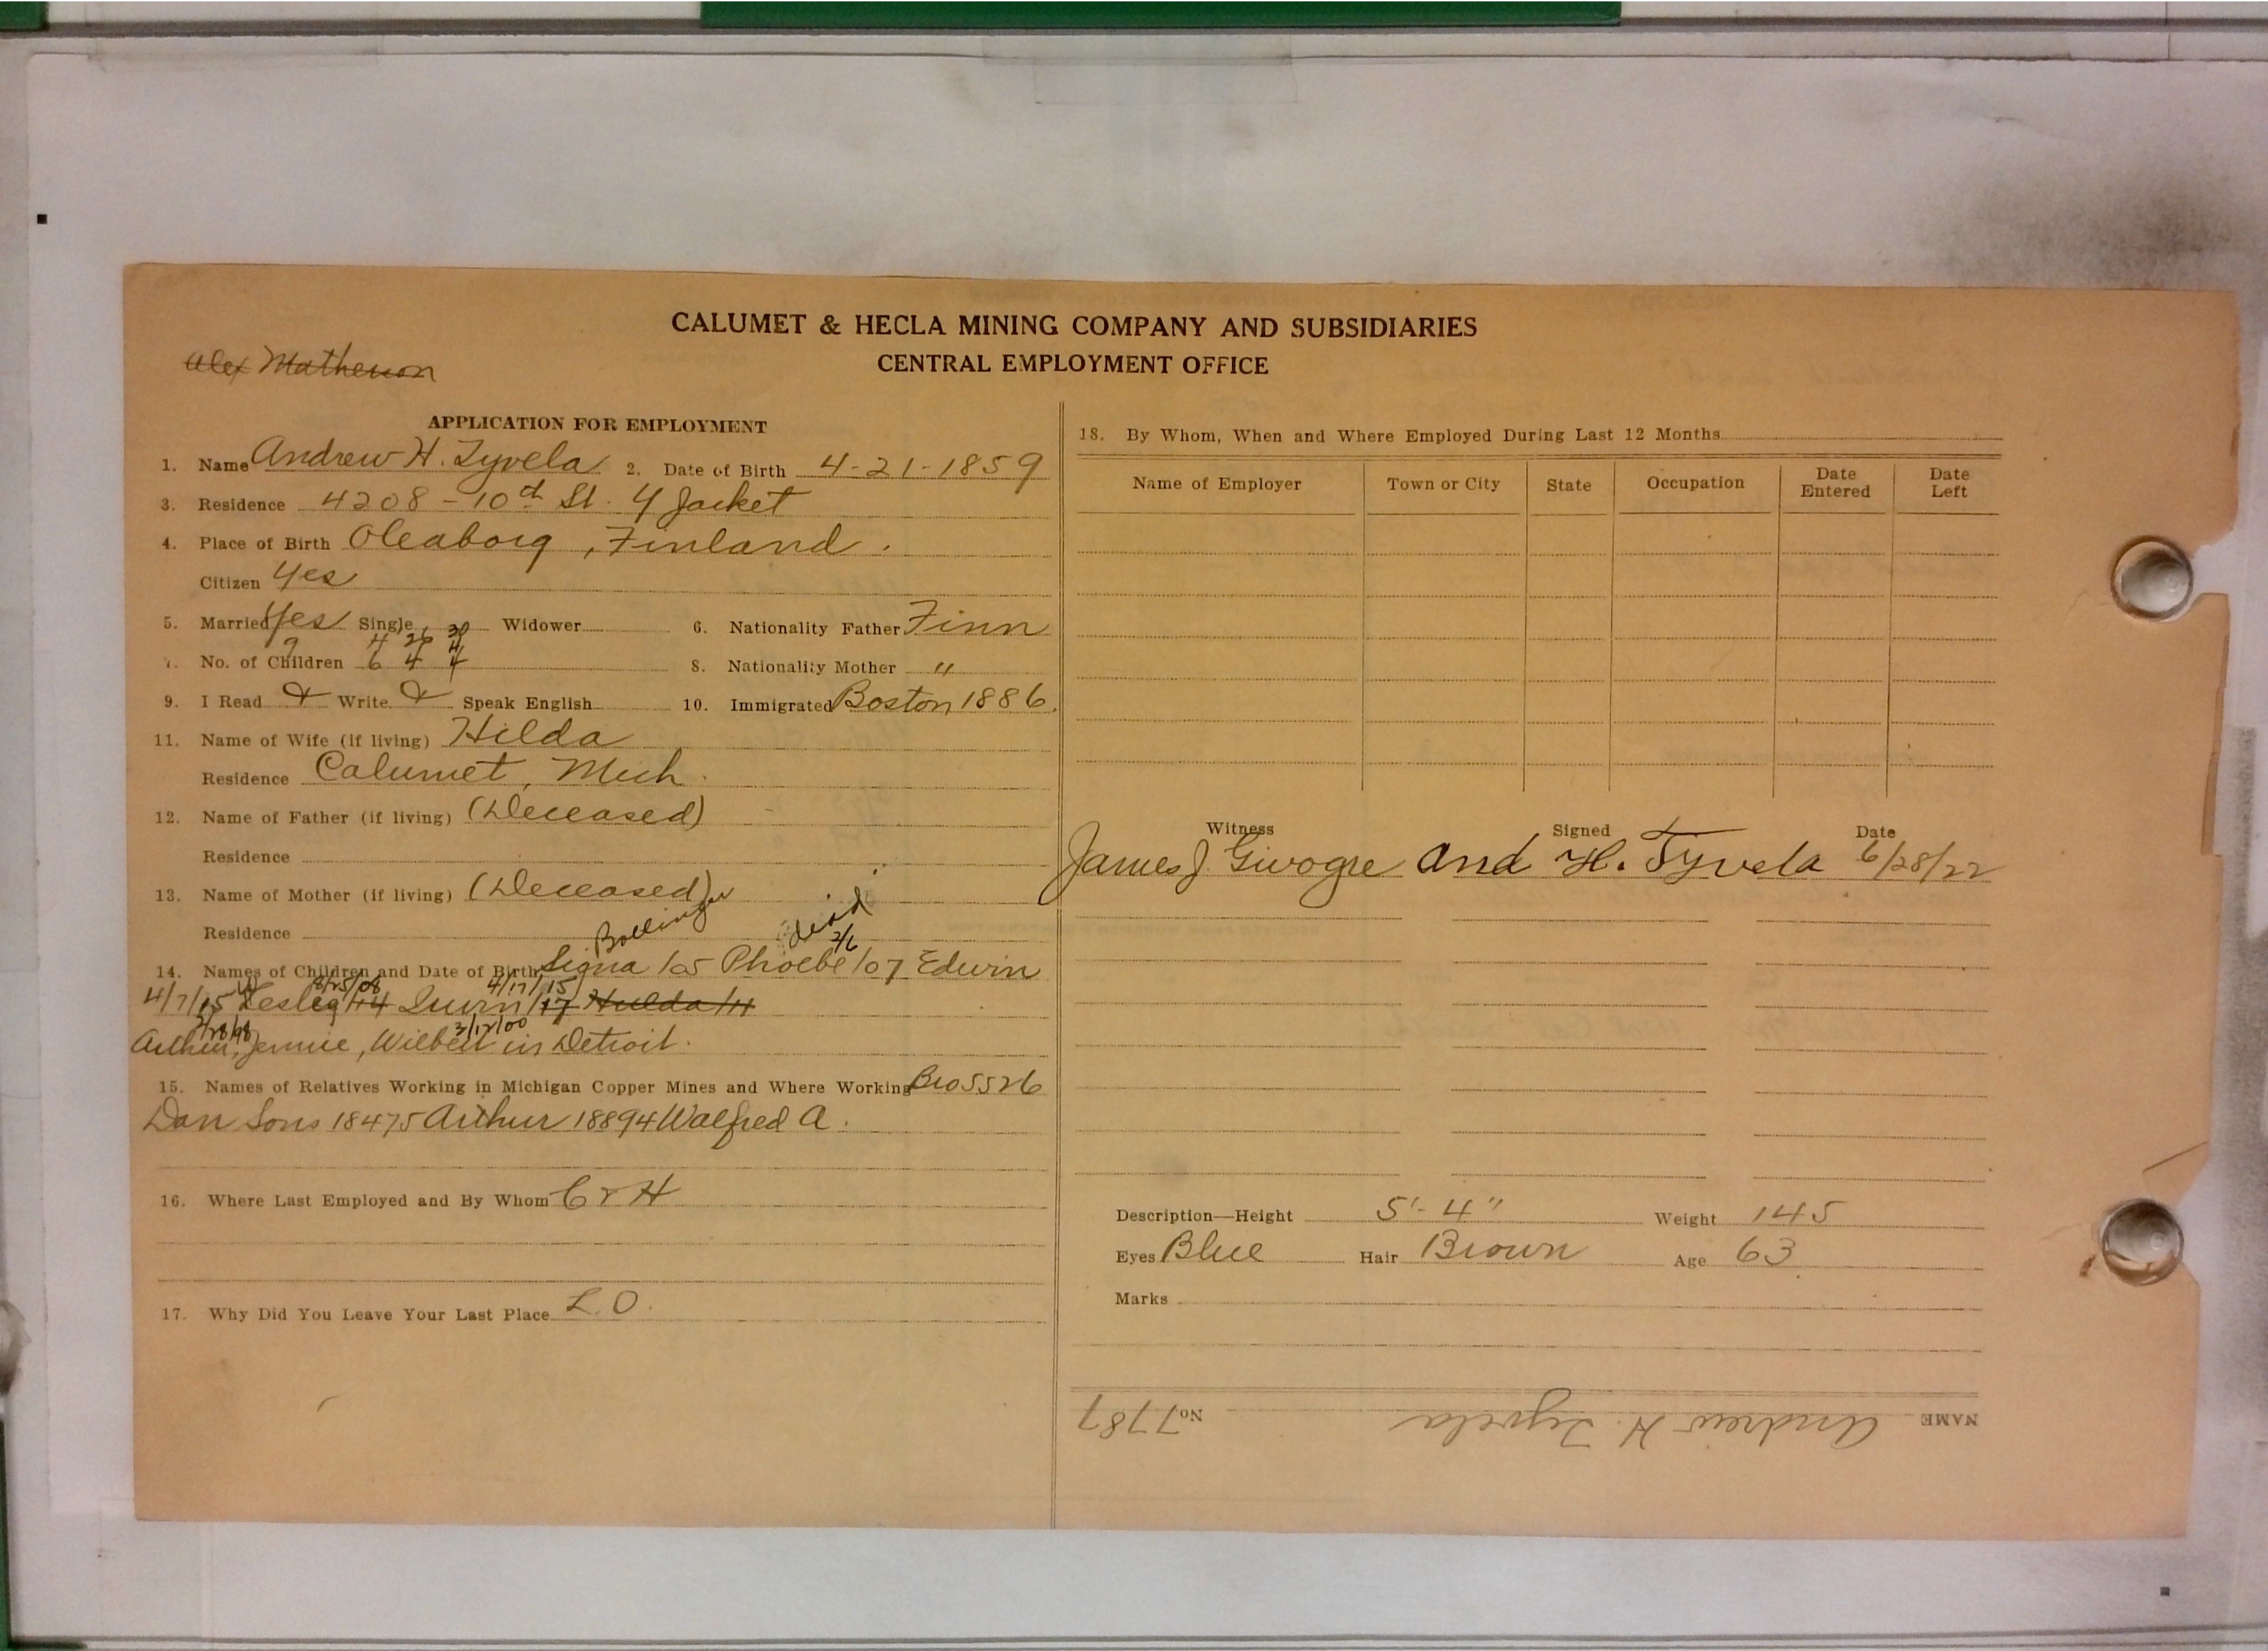 CALUMET & HECLA MINING COMPANY AND SUBSIDIARIES
CENTRAL EMPLOYMENT OFFICE
Alex Matheson
APPLICATION FOR EMPLOYMENT
1. Name Andrew H. Tyvela 2. Date of Birth 4-21-1859
3. Residence 4208 - 10th St. Y Jacket
4. Place of Birth Oleaborg, Finland.
Citizen Yes
5. Married Yes Single Widower 6. Nationality Father Finn
9 4 26 30
7. No. of Children 6 4 4 8. Nationality Mother "
9. I Read & Write & Speak English 10. Immigrated Boston 1886.
11. Name of Wife (if living) Hilda
Residence Calumet, Mich.
12. Name of Father (if living) (Deceased)
Residence
13. Name of Mother (if living) (Deceased)
Residence
Bollinger dead 2/6
14. Names of Children and Date of Birth Signa /05 Phoebe /07 Edwin
8/25/08 4/17/15
4/7/15 Leslie /14 Irwin /17 Hulda /11
2/28/98 3/12/00
Arthur, Jennie, Wilbert in Detroit.
15. Names of Relatives Working in Michigan Copper Mines and Where Working Bro 5526
Dan Sons 18475 Arthur 18894 Walfred A.
16. Where Last Employed and By Whom C & H
17. Why Did You Leave Your Last Place L.O.
18. By Whom, When and Where Employed During Last 12 Months
Name of Employer Town or City State Occupation Date Entered Date Left
Witness Signed Date
James J. Givogre And H. Tyvela 6/28/22
Description—Height 5'-4" Weight 145
Eyes Blue Hair Brown Age 63
Marks
NAME Andrew H. Tyvela No 7787